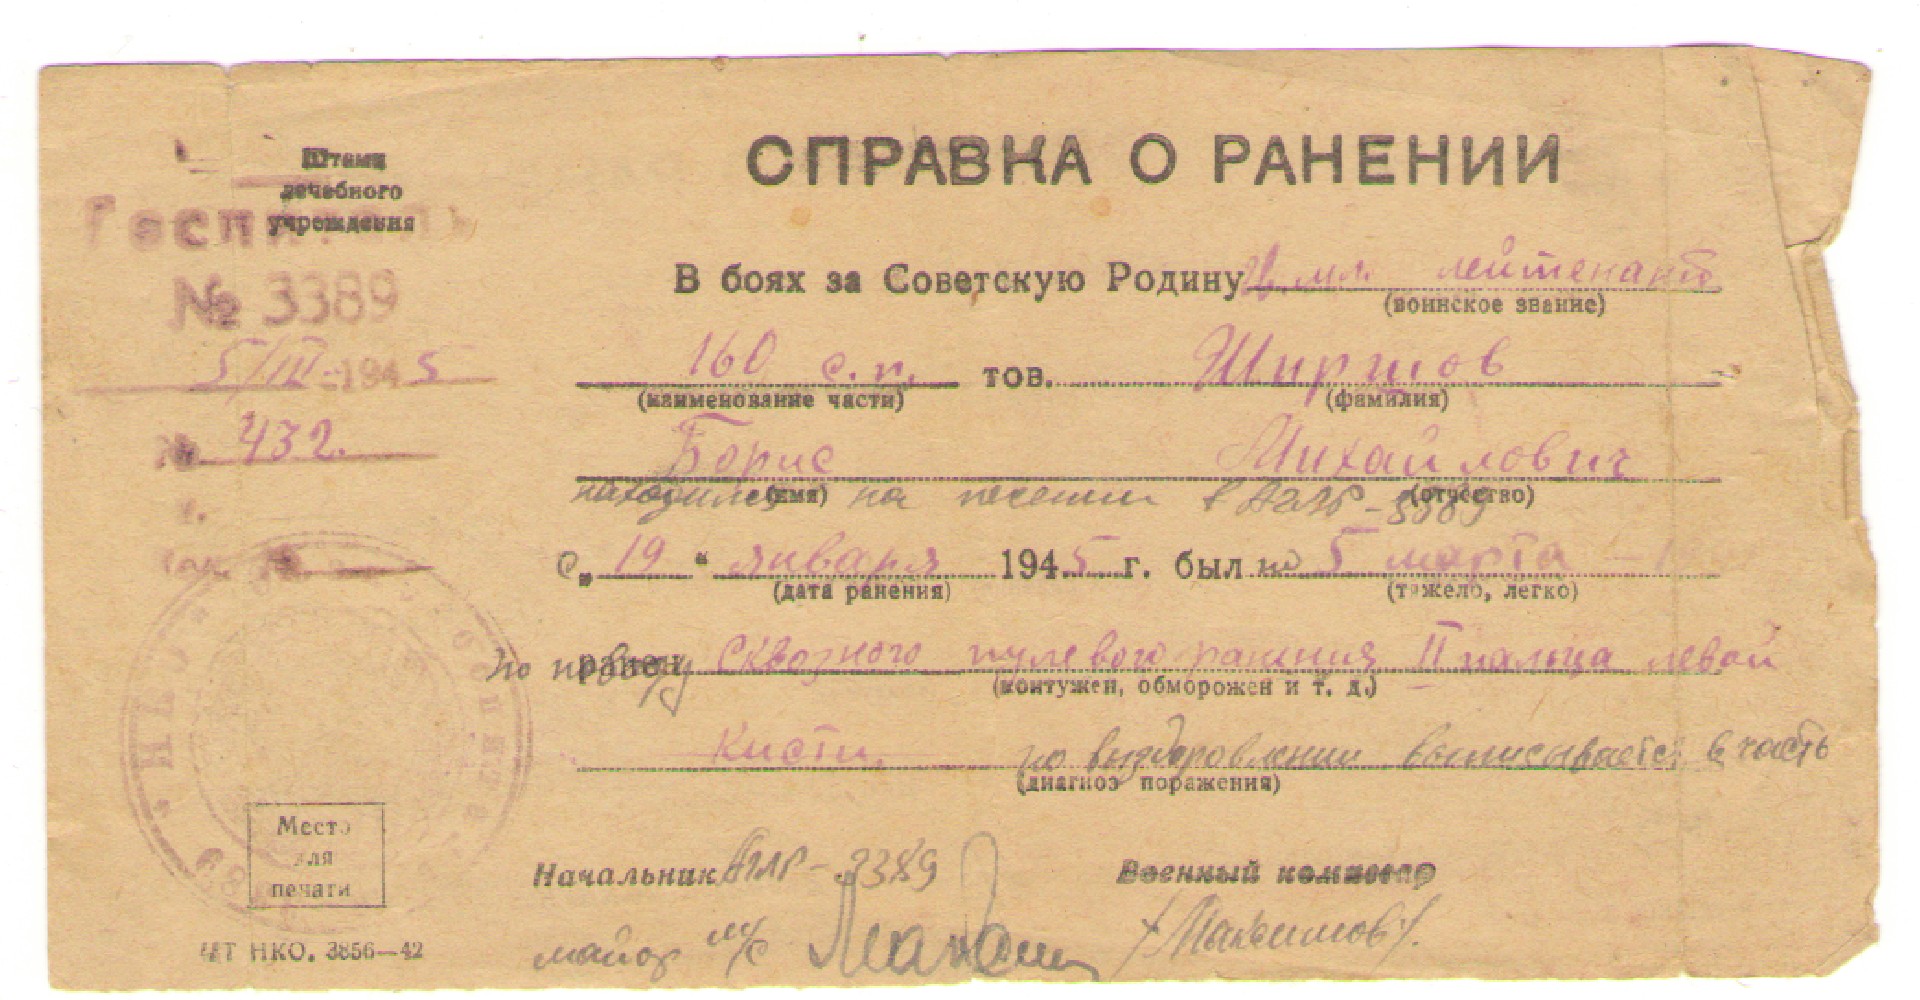 СПРАВКА О РАНЕНИИ
Штамп
лечебного
учреждения
Госпиталь
№ 3389
5/III-1945
№ 432.
В боях за Советскую Родину Гв. мл. лейтенант
(воинское звание)
160 с.п. тов. Ширшов
(наименование части) (фамилия)
Борис Михайлович
(имя) (отчество)
находился на лечении в 3389
с „19“ января 1945 г. был по 5 марта
(дата ранения) (тяжело, легко)
по поводу ранен сквозного пулевого ранения II пальца левой
(контужен, обморожен и т. д.)
кисти. по выздоровлении выписывается в часть
(диагноз поражения)
Место
для
печати
Начальник 3389 Военный комиссар
майор м/с /Максимов/.
ЧТ НКО. 3856—42